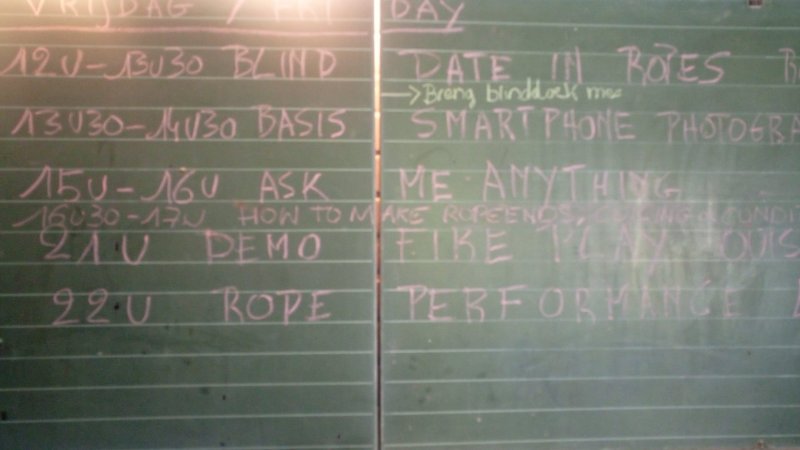 VRIJDAG / FRIDAY
12U-13U30 BLIND DATE IN ROPES
→ Breng blinddoek mee
13U30-14U30 BASIS SMARTPHONE PHOTOGRA
15U-16U ASK ME ANYTHING
16U30-17U HOW TO MAKE ROPEENDS,
21U DEMO FIRE PLAY
22U ROPE PERFORMANCE